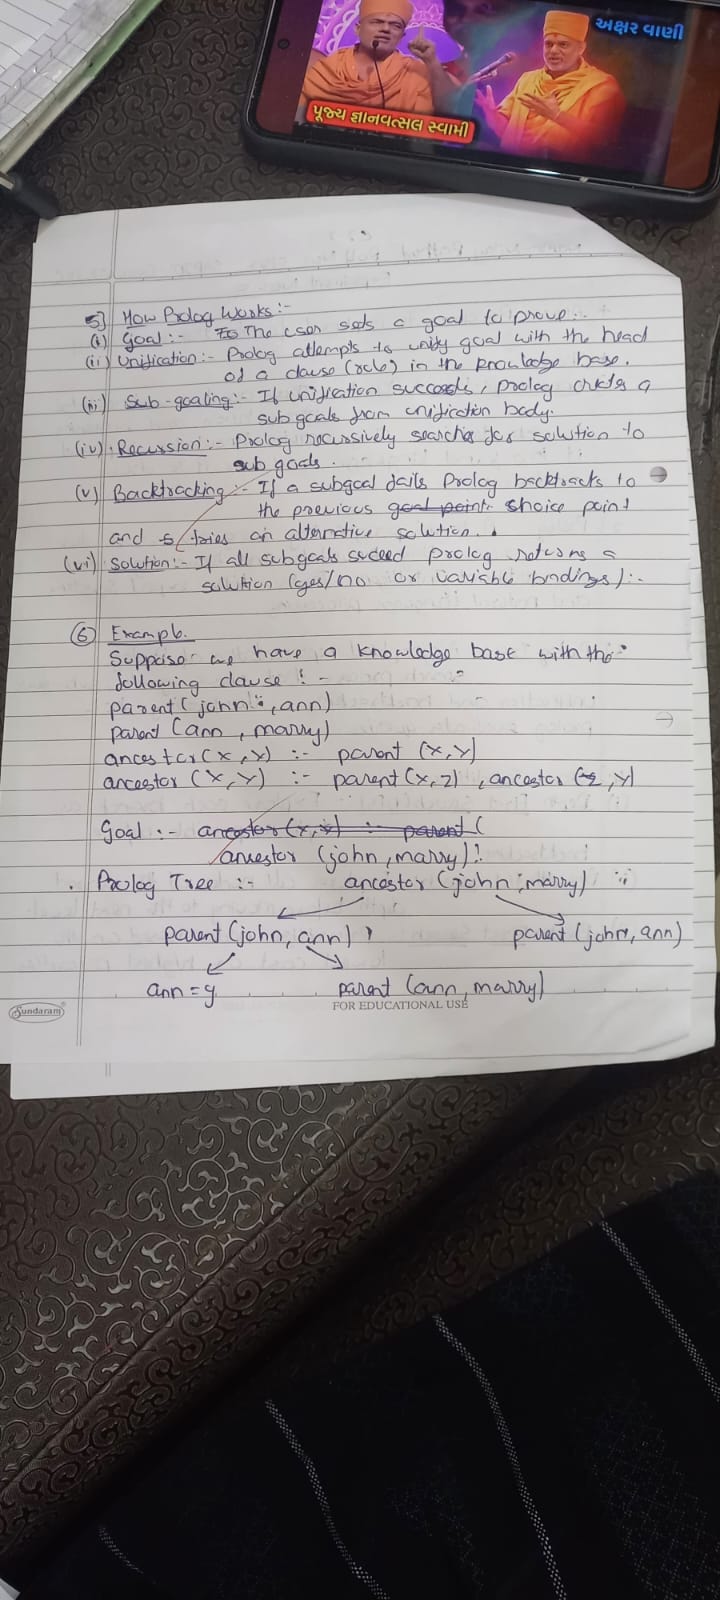 અક્ષર વાણી
પૂજ્ય જ્ઞાનવત્સલ સ્વામી
5] How Prolog Works:-
(i) Goal:- The user sets a goal to prove:.
(ii) Unification:- Prolog attempts to unify goal with the head
of a clause (rule) in the knowledge base.
(iii) Sub-goaling:- If unification succeeds, prolog creates a
sub goals from unification body.
(iv) Recursion:- Prolog recursively searches for solution to
sub goals.
(v) Backtracking:- If a subgoal fails Prolog backtracks to
the previous goal point choice point
and tries an alternative solution.
(vi) Solution:- If all subgoals succeed prolog returns a
solution (yes/no or variable bindings):-
6 Example.
Suppose we have a knowledge base with the
following clause:-
parent(john, ann)
parent (ann, marry)
ancestor(X,Y) :- parent (X,Y)
ancestor (X,Y) :- parent(X,Z), ancestor (Z,Y)
Goal:- ancestor(X,Y) :- parent(
ancestor (john, marry):
Prolog Tree:- ancestor (john, marry)
parent(john, ann), parent(john, ann)
ann = y parent (ann, marry)
Sundaram FOR EDUCATIONAL USE